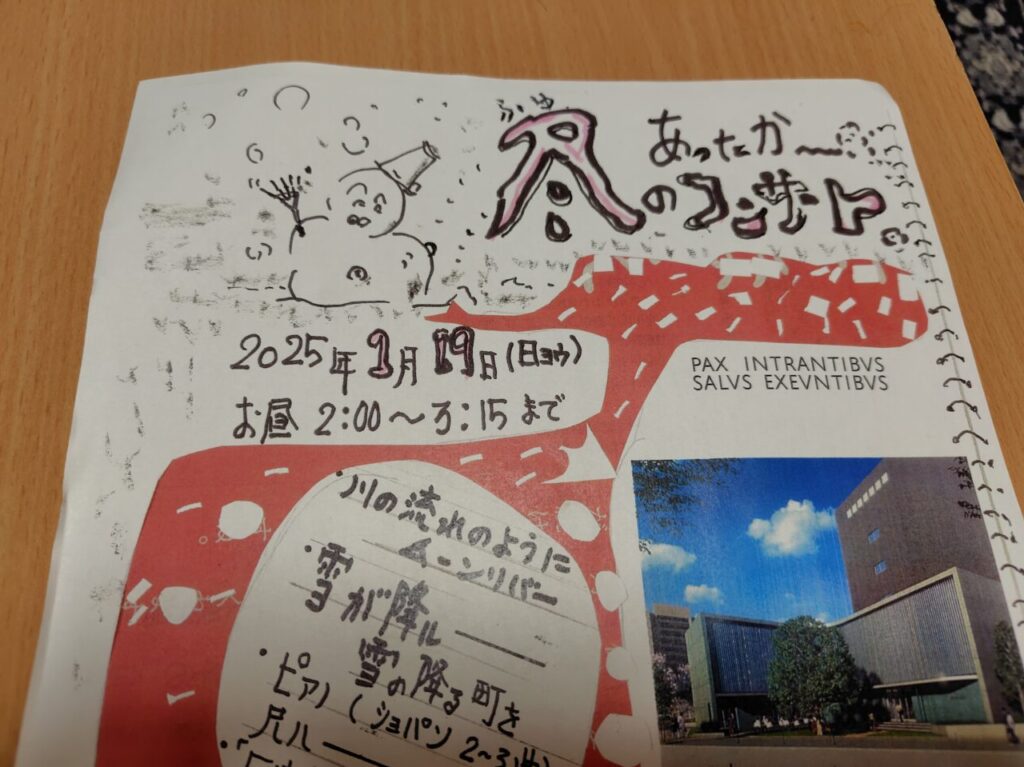 あったか〜
ふゆ
冬のコンサート
2025年1月19日(日ヨウ)
お昼 2:00〜3:15まで
PAX INTRANTIBVS
SALVS EXEVNTIBVS
・川の流れのように
ムーンリバー
・雪が降ル――
雪の降る町を
・ピアノ(ショパン 2~3曲)
尺八――